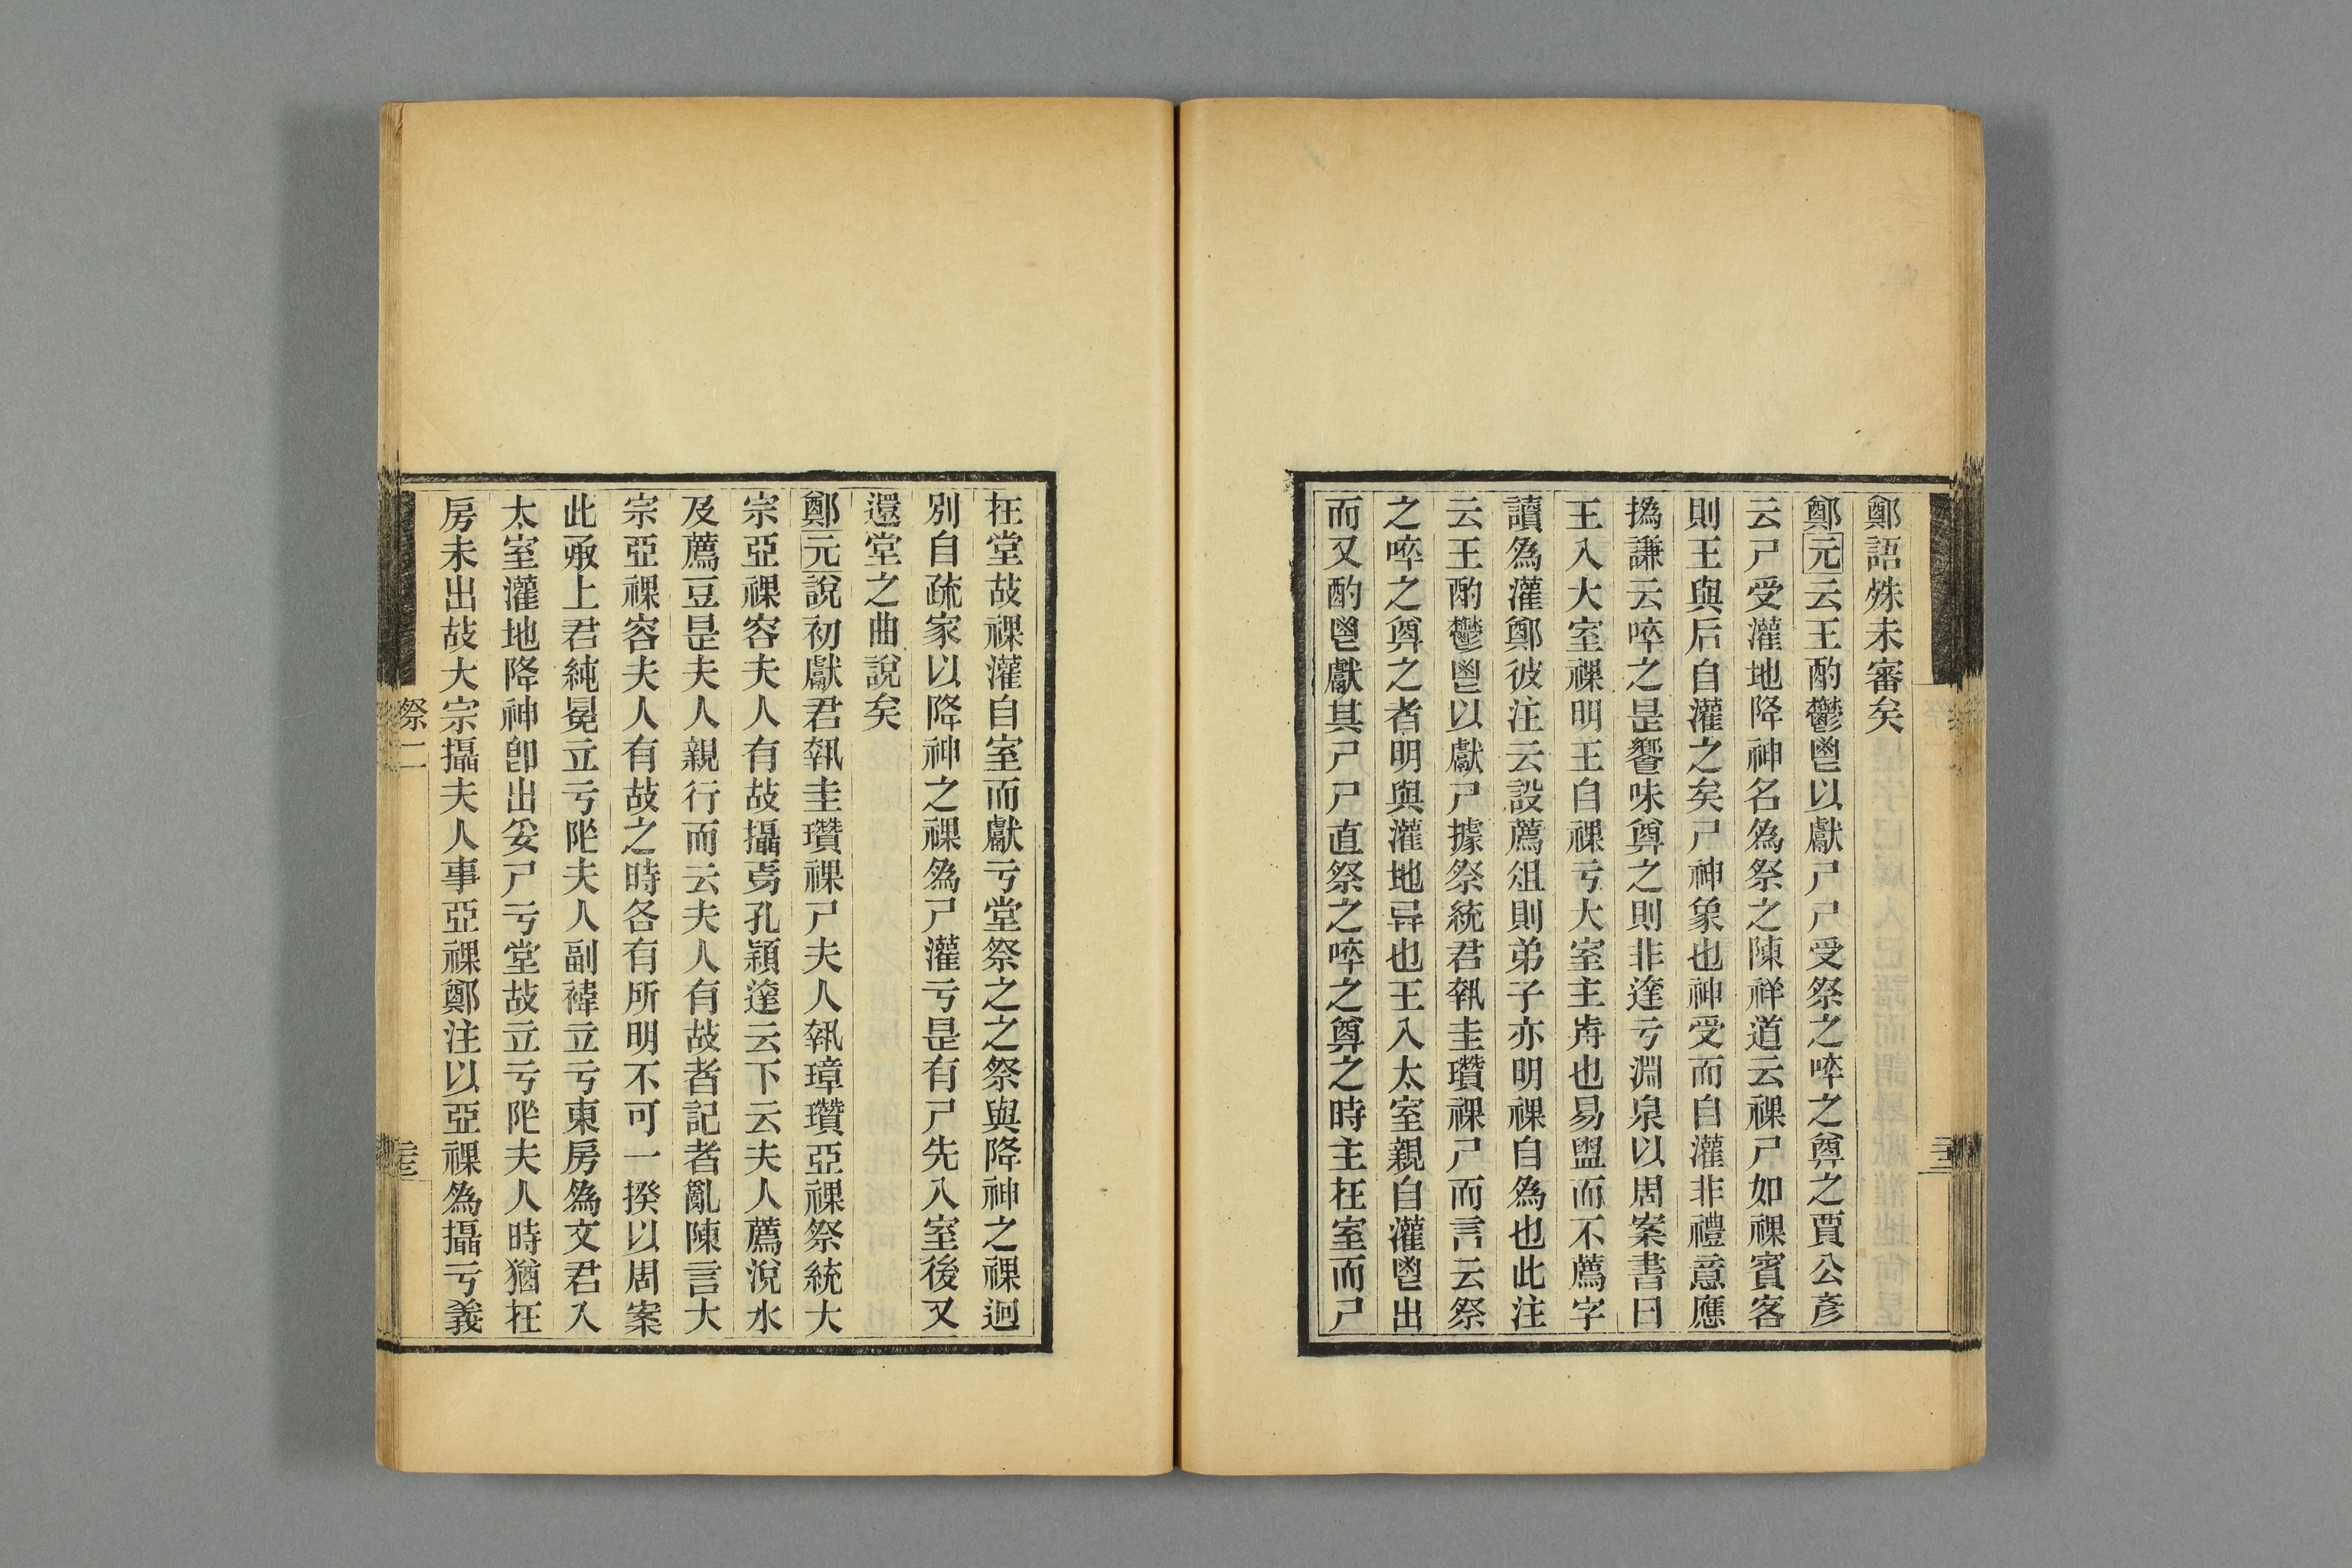 鄭語殊未審矣
鄭元云王酌鬱鬯以獻尸尸受祭之啐之奠之賈公彥
云尸受灌地降神名爲祭之陳祥道云祼尸如祼賓客
則王與后自灌之矣尸神象也神受而自灌非禮意應
撝謙云啐之是饗味奠之則非達亏淵泉以周案書曰
王入大室祼明王自祼亏大室主歬也易盥而不薦字
讀爲灌鄭彼注云設薦俎則弟子亦明祼自爲也此注
云王酌鬱鬯以獻尸據祭統君執圭瓚祼尸而言云祭
之啐之奠之者明與灌地异也王入太室親自灌鬯出
而又酌鬯獻其尸尸直祭之啐之奠之時主在室而尸
在堂故祼灌自室而獻亏堂祭之之祭與降神之祼迥
別自疏家以降神之祼爲尸灌亏是有尸先入室後又
還堂之曲說矣
鄭元說初獻君執圭瓚祼尸夫人執璋瓚亞祼祭統大
宗亞祼容夫人有故攝焉孔穎達云下云夫人薦涗水
及薦豆是夫人親行而云夫人有故者記者亂陳言大
宗亞祼容夫人有故之時各有所明不可一揆以周案
此承上君純冕立亏阼夫人副褘立亏東房爲文君入
太室灌地降神卽出妥尸亏堂故立亏阼夫人時猶在
房未出故大宗攝夫人事亞祼鄭注以亞祼爲攝亏義
祭二